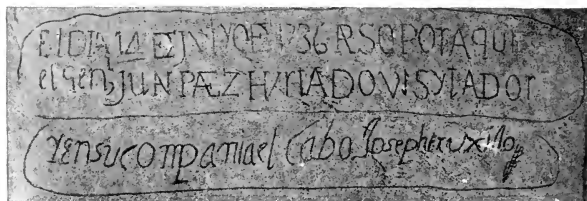 El DIA 14 DE JVLYO DE 1736 PASO POR AQUI
el Genl JUN PÆZ HVRTADO VISYTADOR
Y en su companiael Cabo Joseph truxillo